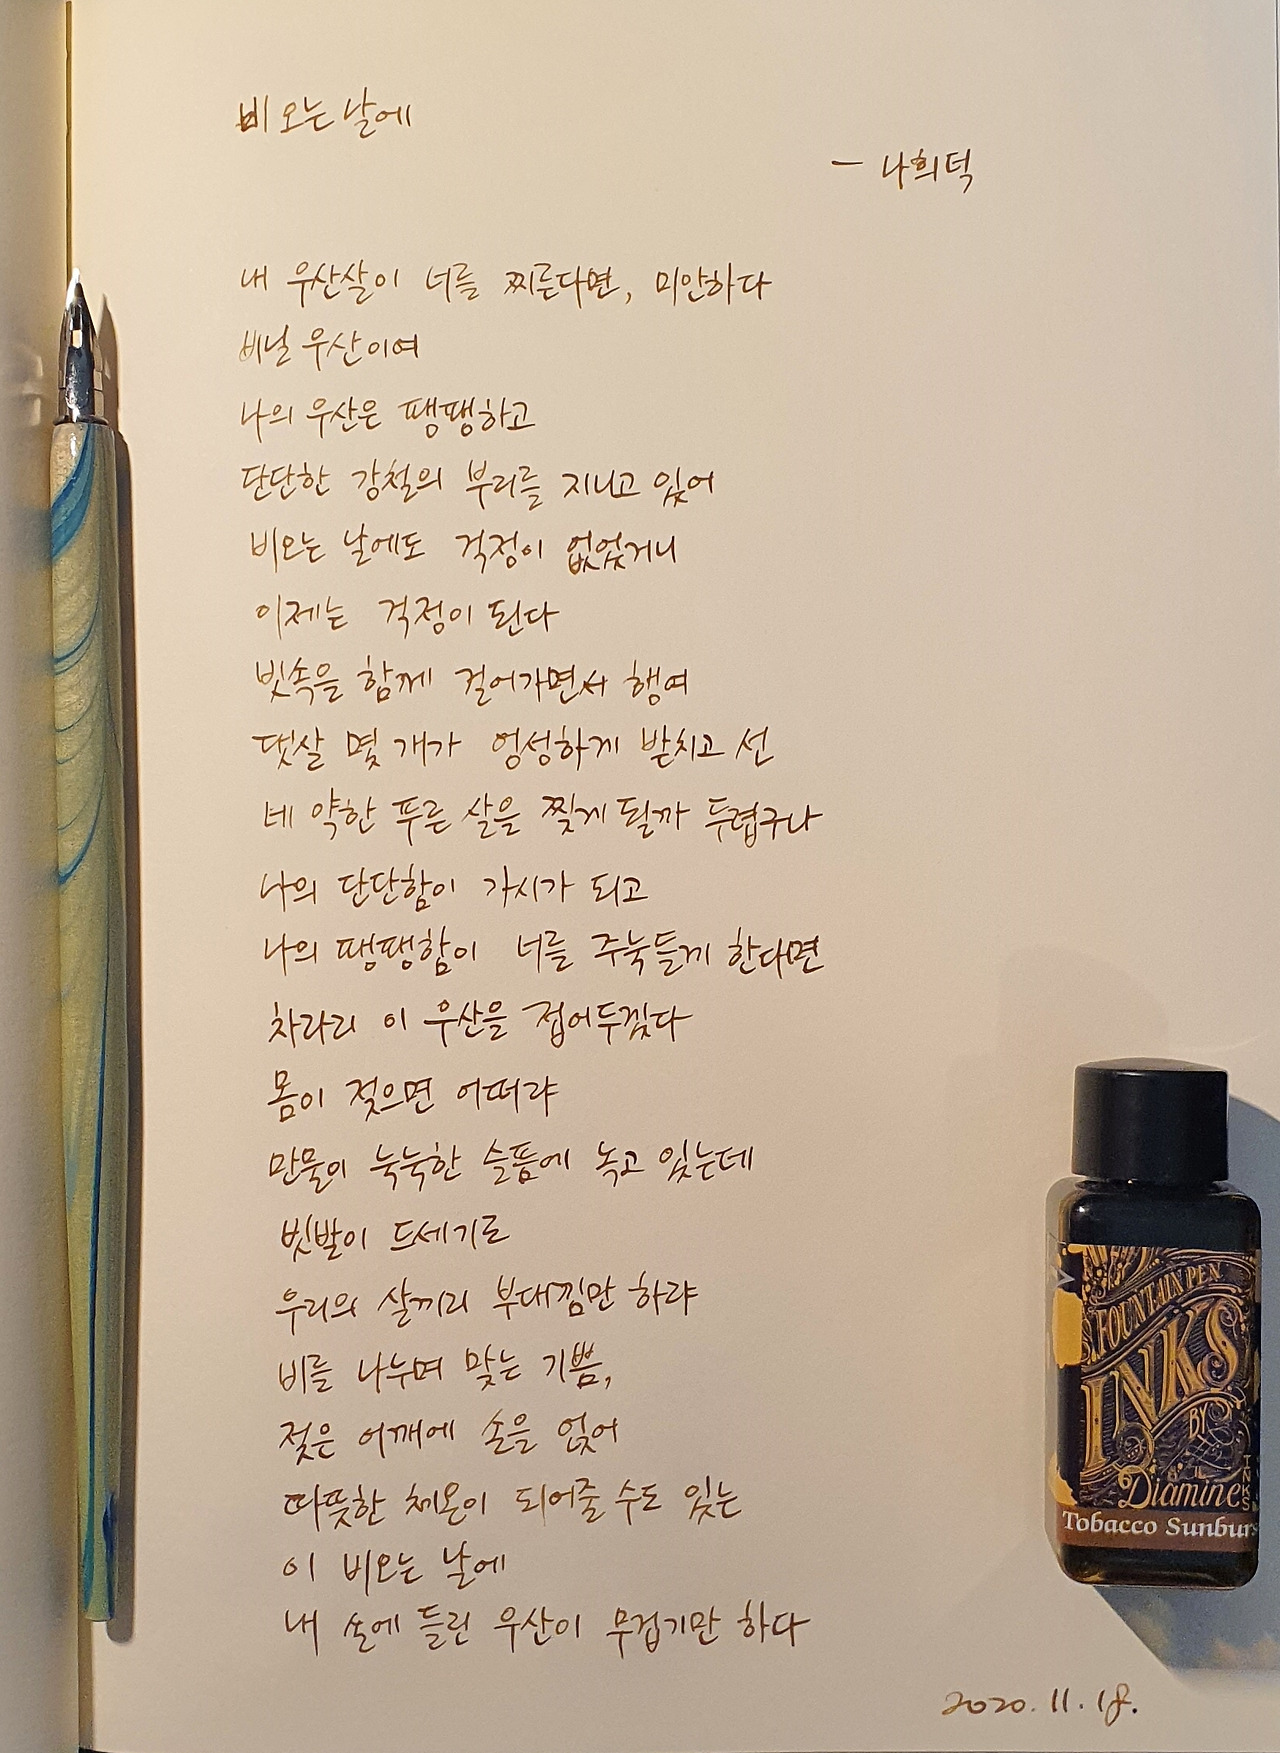 비 오는 날에
- 나희덕
내 우산살이 너를 찌른다면, 미안하다
비닐 우산이여
나의 우산은 팽팽하고
단단한 강철의 부리를 지니고 있어
비오는 날에도 걱정이 없었거니
이제는 걱정이 된다
빗속을 함께 걸어가면서 행여
댓살 몇 개가 엉성하게 받치고 선
네 약한 푸른 살을 찢게 될까 두렵구나
나의 단단함이 가시가 되고
나의 팽팽함이 너를 주눅들게 한다면
차라리 이 우산을 접어두겠다
몸이 젖으면 어떠랴
만물이 눅눅한 슬픔에 녹고 있는데
빗발이 드세기로
우리의 살끼리 부대낌만 하랴
비를 나누며 맞는 기쁨,
젖은 어깨에 손을 얹어
따뜻한 체온이 되어줄 수도 있는
이 비오는 날에
내 손에 들린 우산이 무겁기만 하다
2020. 11. 18.
FOUNTAIN PEN
INKS
BY
Diamine
INKS
Tobacco Sunburs